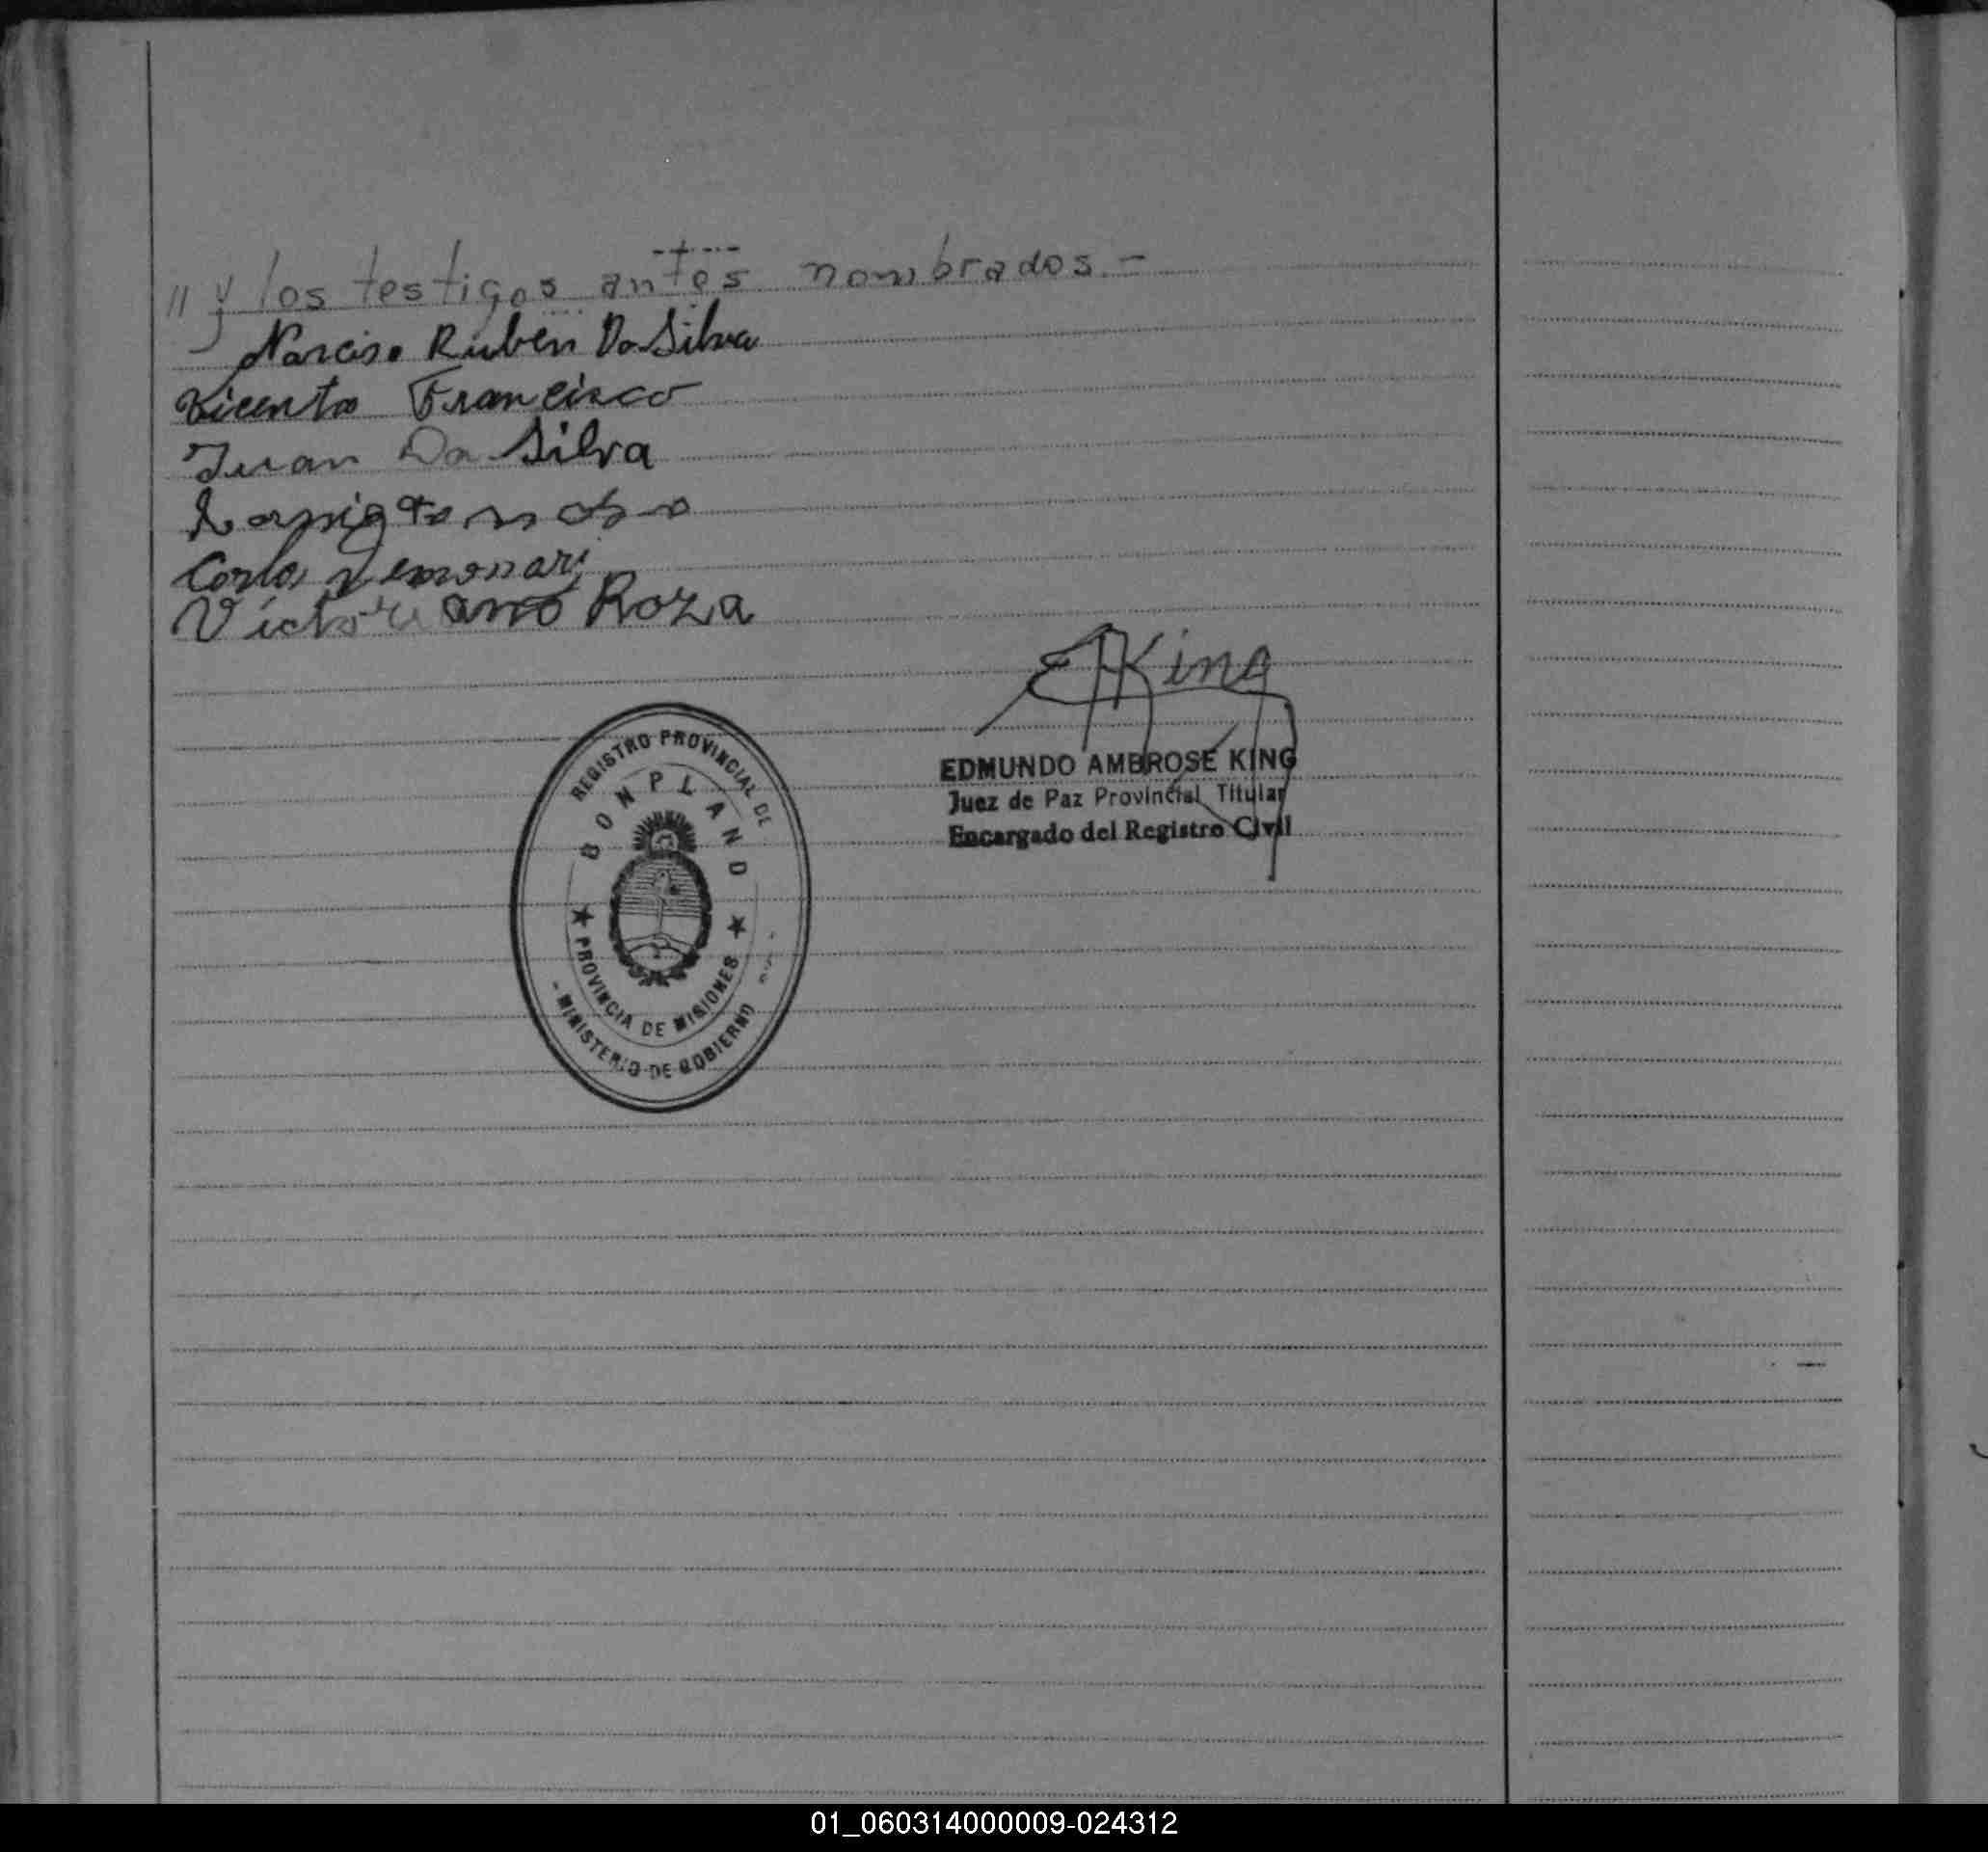 // y los testigos antes nombrados.-
Narciso Ruben Da Silva
Vicenta Francisco
Juan Da Silva
Carlos
Victoriano Roza
EKing
EDMUNDO AMBROSE KING
Juez de Paz Provincial Titular
Encargado del Registro Civil
REGISTRO PROVINCIAL DE
BONPLAND
★ PROVINCIA DE MISIONES ★
- MINISTERIO DE GOBIERNO
01_060314000009-024312